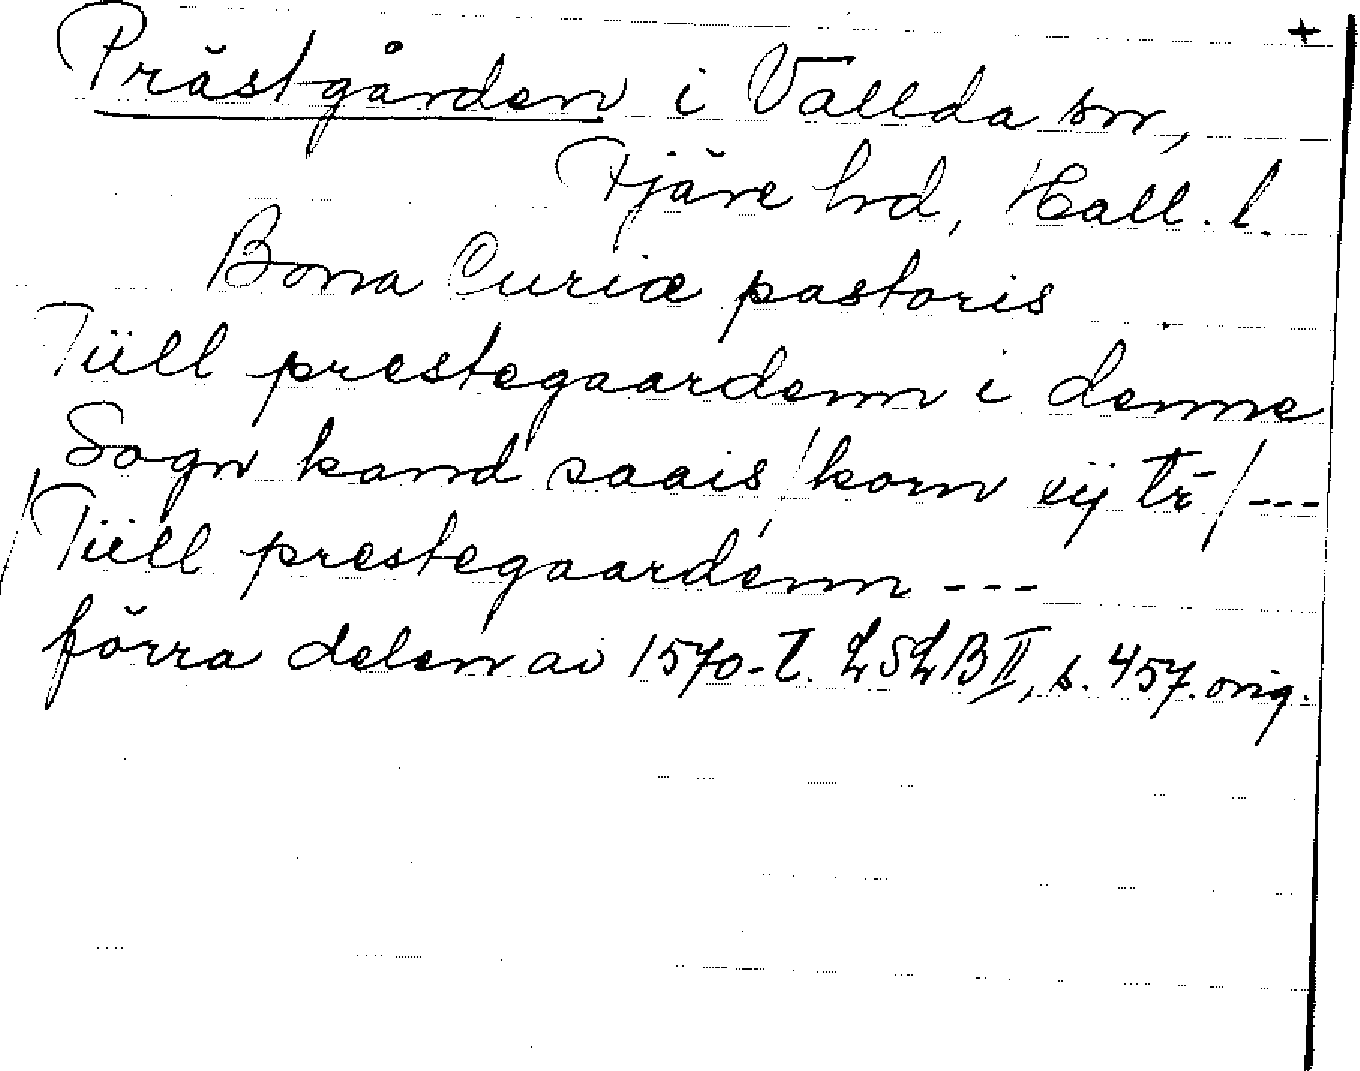 +
Prästgården i Vallda sn,
Fjäre hrd, Hall. l.
Bona Curiæ pastoris
Tiill prestegaardenn i denne
Sogn kand saais / korn xij tr / ---
/ Tiill prestegaardenn ---
förra delen av 1570-t. LSLB II, s. 457. orig.